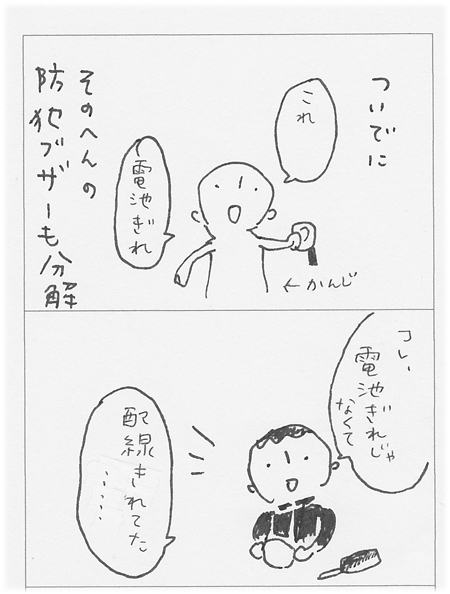 ついでに
そのへんの
防犯ブザーも分解
これ
電池ぎれ
←かんじ
コレ、
電池ぎれじゃ
なくて
配線きれてた
……